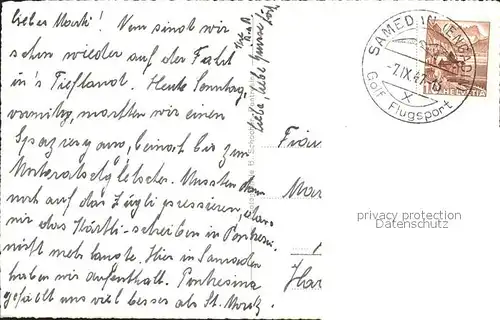 Lieber Marti! Nun sind wir
schon wieder auf der Fahrt
in's Tiefland. Heute Sonntag,
vormittg, machten wir einen
Spaziergang, beinah bis zum
Morteratschgletscher. Mussten dann
noch auf das Zügli pressieren,
mir das Kärtli-schreiben in Pontresin.
nicht mehr langte. Hier in Samaden
haben wir Aufenthalt. Pontresina
gefällt uns viel besser als St. Moritz.
Liebe, liebe Grüsse
SAMEDAN (ENGADIN)
-7.IX.47.
X
Golf Flugsport
HELVETIA
Frau
Mar
Har
privacy protection
Datenschutz